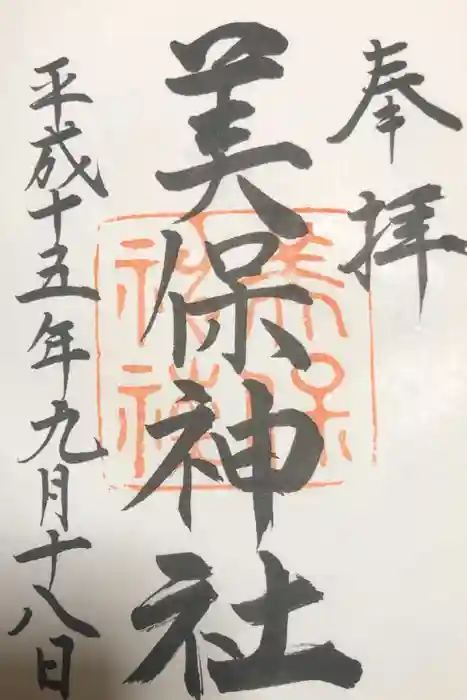 奉拝
美保神社
美保
神社
平成十五年九月十八日